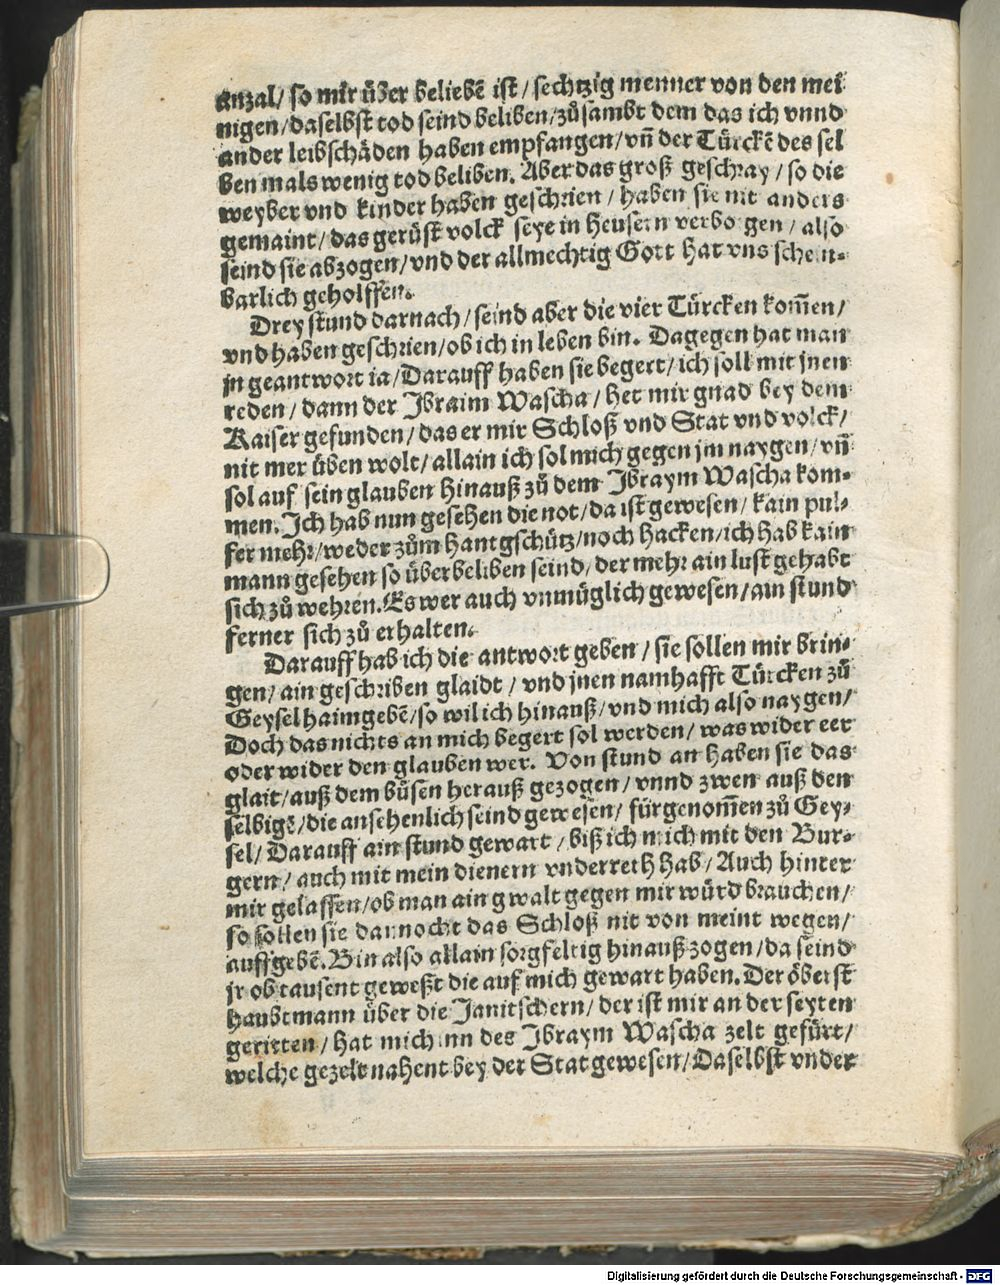 anzal/ so mir über beliebē ist/ sechtzig menner von den mei
nigen/ daselbst tod seind beliben/ zůsambt dem das ich vnnd
ander leibschäden haben empfangen/ vñ der Türckē des sel
ben mals wenig tod beliben. Aber das groß geschray/ so die
weyber vnd kinder haben geschrien/ haben sie nit anders
gemaint/ das gerüst volck seye in heusern verborgen/ also
seind sie abzogen/ vnd der allmechtig Gott hat vns schein⸗
barlich geholffen.
Drey stund darnach/ seind aber die vier Türcken kom̄en/
vnd haben geschrien/ ob ich in leben bin. Dagegen hat man
jn geantwort ia/ Darauff haben sie begert/ ich soll mit jnen
reden/ dann der Ibraim Wascha/ het mir gnad bey dem
Kaiser gefunden/ das er mir Schloß vnd Stat vnd volck/
nit mer üben wolt/ allain ich sol mich gegen jm naygen/ vñ
sol auf sein glauben hinauß zů dem Ibraym Wascha kom⸗
men. Ich hab nun gesehen die not/ da ist gewesen/ kain pul⸗
fer mehr/ weder zům hantgschütz/ noch hacken/ ich hab kain
mann gesehen so überbeliben seind/ der mehr ain lust gehabt
sich zů wehren. Es wer auch vnmüglich gewesen/ ain stund
ferner sich zů erhalten.
Darauff hab ich die antwort geben/ sie sollen mir brin⸗
gen/ ain geschriben glaidt/ vnd jnen namhafft Türcken zů
Geysel haimgebē/ so wil ich hinauß/ vnd mich also naygen/
Doch das nichts an mich begert sol werden/ was wider eer
oder wider den glauben wer. Von stund an haben sie das
glait/ auß dem bůsen herauß gezogen/ vnnd zwen auß den
selbigē/ die ansehenlich seind gewesen/ fürgenom̄en zů Gey⸗
sel/ Darauff ain stund gewart/ biß ich mich mit den Bur⸗
gern/ auch mit mein dienern vnderreth hab/ Auch hinter
mir gelassen/ ob man ain gwalt gegen mir würd brauchen/
so sollen sie dannocht das Schloß nit von meint wegen/
auffgebē. Bin also allain sorgfeltig hinauß zogen/ da seind
jr ob tausent geweßt die auf mich gewart haben. Der öberst
haubtmann über die Janitschern/ der ist mir an der seyten
geritten/ hat mich inn des Ibraym Wascha zelt gefürt/
welche gezelt nahent bey der Stat gewesen/ Daselbst vnder
Digitalisierung gefördert durch die Deutsche Forschungsgemeinschaft - DFG